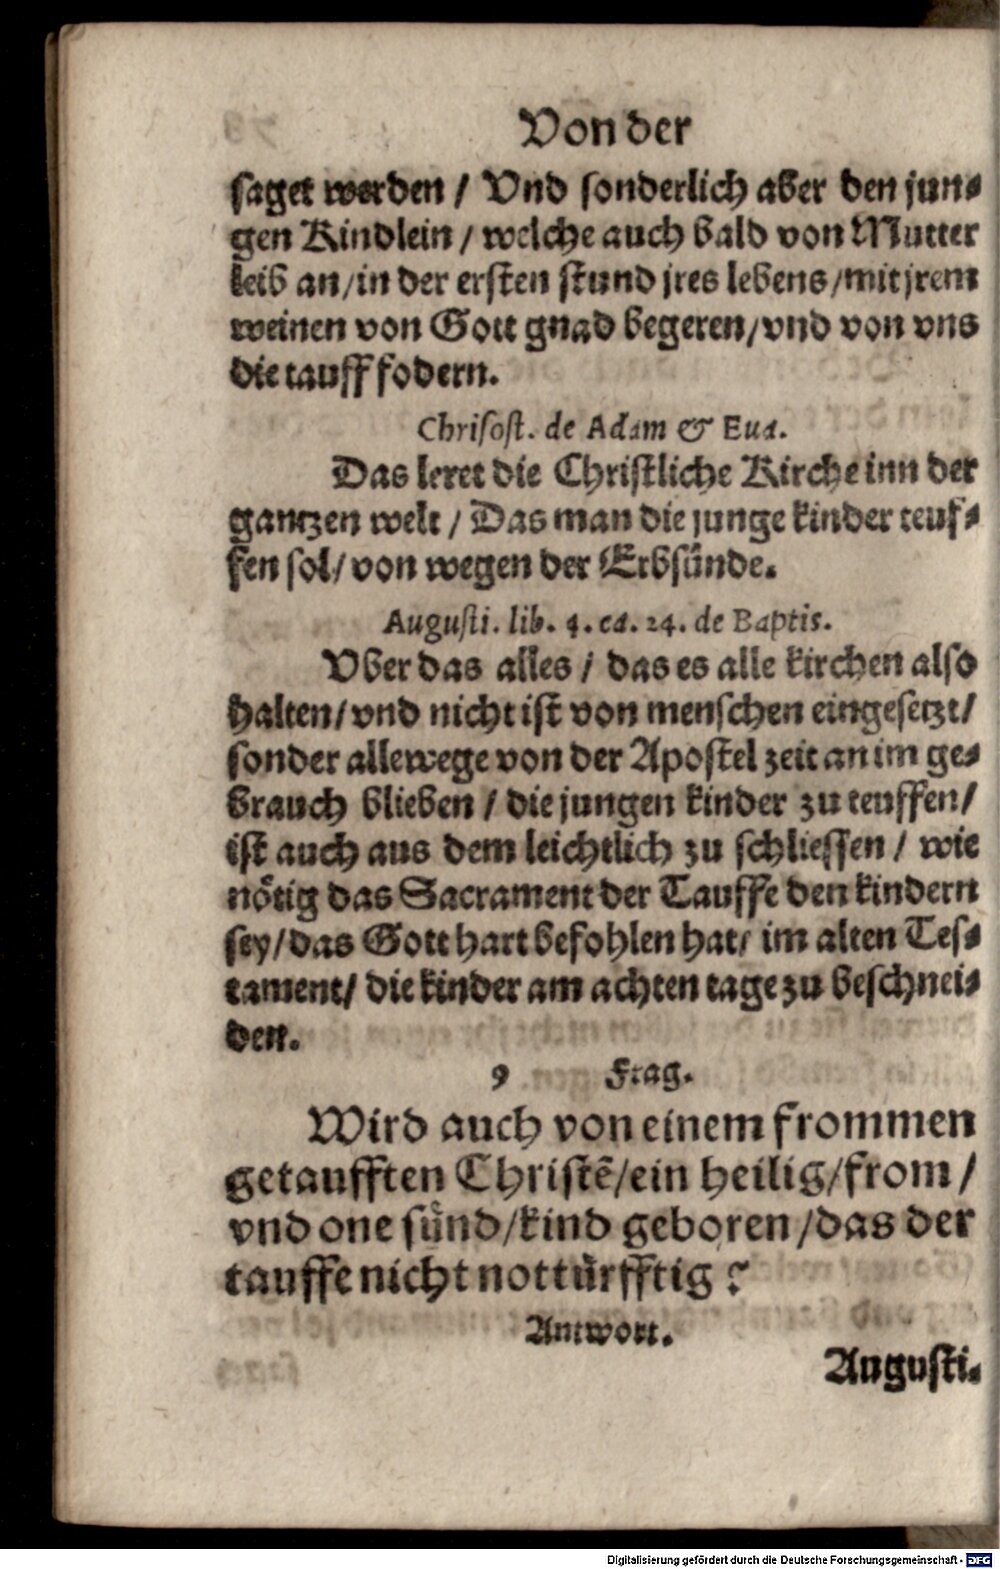 Von der
saget werden / Vnd sonderlich aber den jun⸗
gen Kindlein / welche auch bald von Mutter
leib an/in der ersten stund jres lebens/mit jrem
weinen von Gott gnad begeren/vnd von vns
die tauff fodern.
Chrisost. de Adam & Eua.
Das leret die Christliche Kirche inn der
gantzen welt / Das man die junge kinder teuf⸗
fen sol/von wegen der Erbsünde.
Augusti. lib. 4. ca. 24. de Baptis.
Vber das alles / das es alle kirchen also
halten/vnd nicht ist von menschen eingesetzt/
sonder allewege von der Apostel zeit an im ge⸗
brauch blieben / die jungen kinder zu teuffen/
ist auch aus dem leichtlich zu schliessen / wie
nötig das Sacrament der Tauffe den kindern
sey/das Gott hart befohlen hat/ im alten Tes⸗
tament/ die kinder am achten tage zu beschnei⸗
den.
9 Frag.
Wird auch von einem frommen
getaufften Christē/ein heilig/from/
vnd one sünd/kind geboren/das der
tauffe nicht nottürfftig?
Antwort.
Augusti.
Digitalisierung gefördert durch die Deutsche Forschungsgemeinschaft - DFG